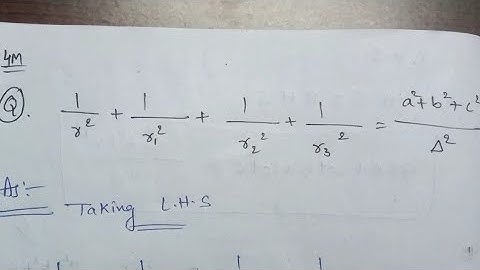 4M
Q. 1/r² + 1/r₁² + 1/r₂² + 1/r₃² = a²+b²+c²/Δ²
As:-
Taking L.H.S